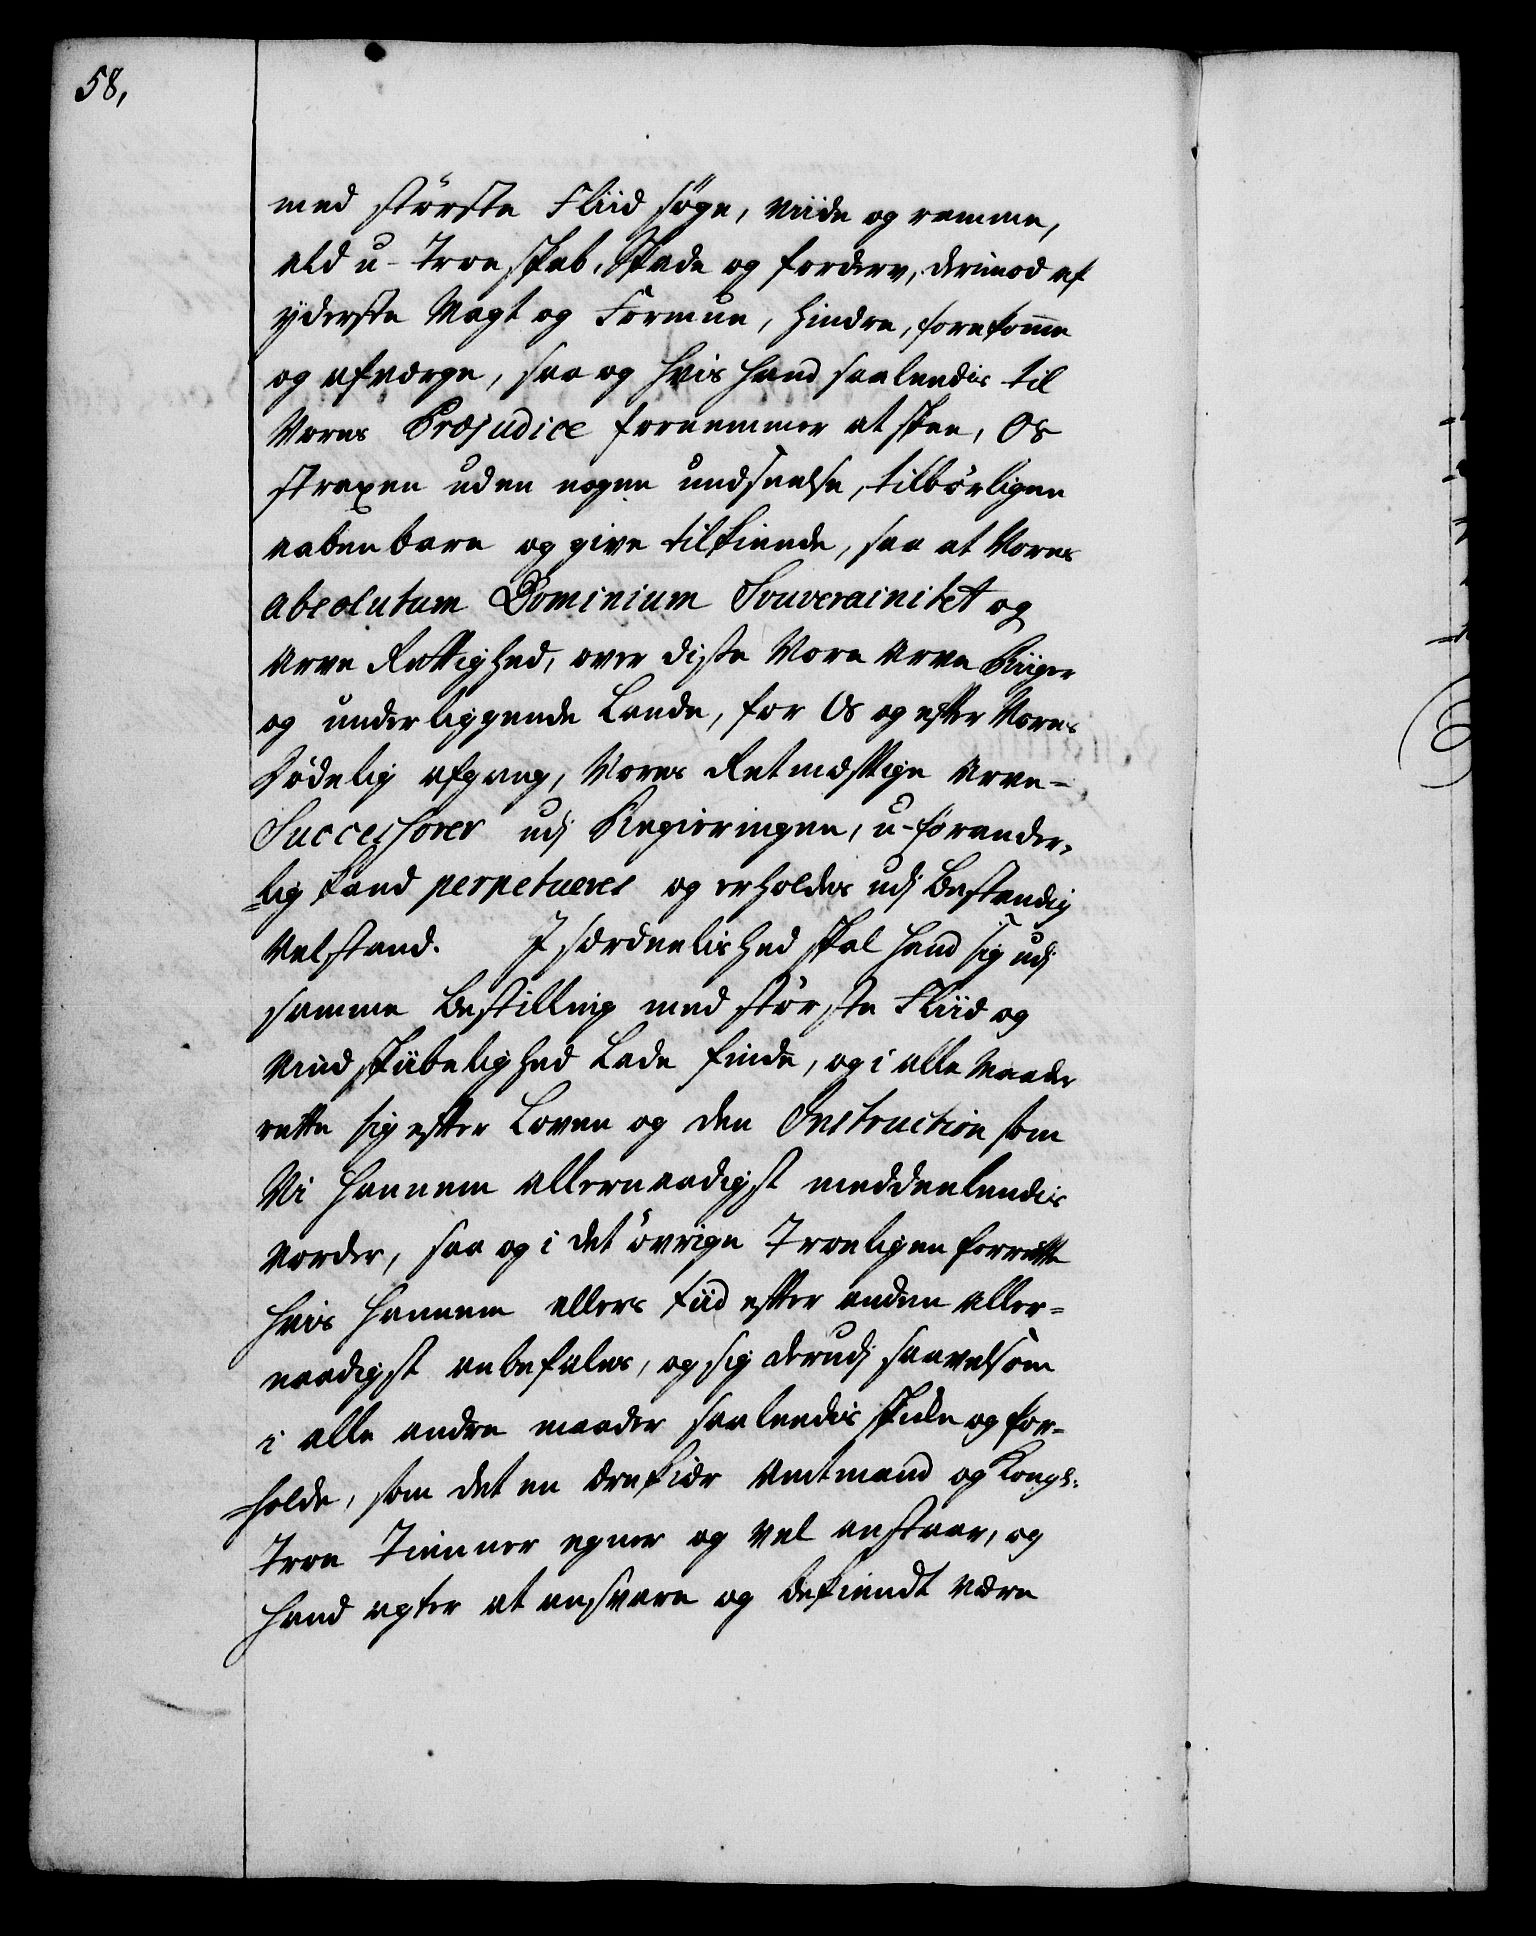 58,
med største Fliid søge, viide og ramme,
ald u-Troeskab, Skade og forderv, derimod af
yderste Magt og Formue, hindre, forekomme
og afværge, saa og hvis hand saaledis til
Vores Præjudice fornemmer at skee, Os
straxen uden nogen undseelse, tilbørligen
aabenbare og give tilkiende, saa at Vores
absolutum Dominium Souverainitet og
Arve Rettighed, over disse Vore Arve Riiger
og underliggende Lande, for Os og efter Vores
Dødelig afgang, Vores Retmæssige Arve-
Successorer udj Regieringen, u-forander-
lig kand perpetueres og erholdes udj bestandig
Velstand. I særdeelished skal hand sig udj
samme Bestilling med største Fliid og
Vindskibelighed lade finde, og i alle Maader
rette sig efter Loven og den Instruction som
Vi hannem allernaadigst meddeelendis
vorder, saa og i det øvrige Troeligen forrette
hvis hannem ellers tiid efter anden aller-
naadigst anbefales, og sig derudj saavelsom
i alle andre maader saaledis skikke og for-
holde, som det en ærekiær Amtmand og Kongl:
Troe Tienner egner og vel anstaar, og
hand agter at ansvare og bekiendt være